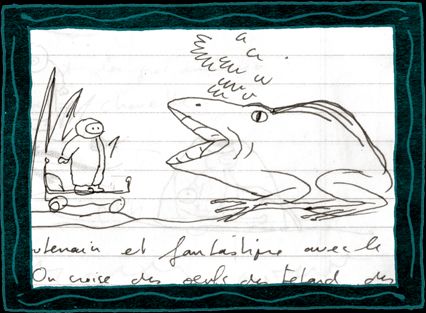 utenain et fantastique avec le
On croise des oeufs des tetard des